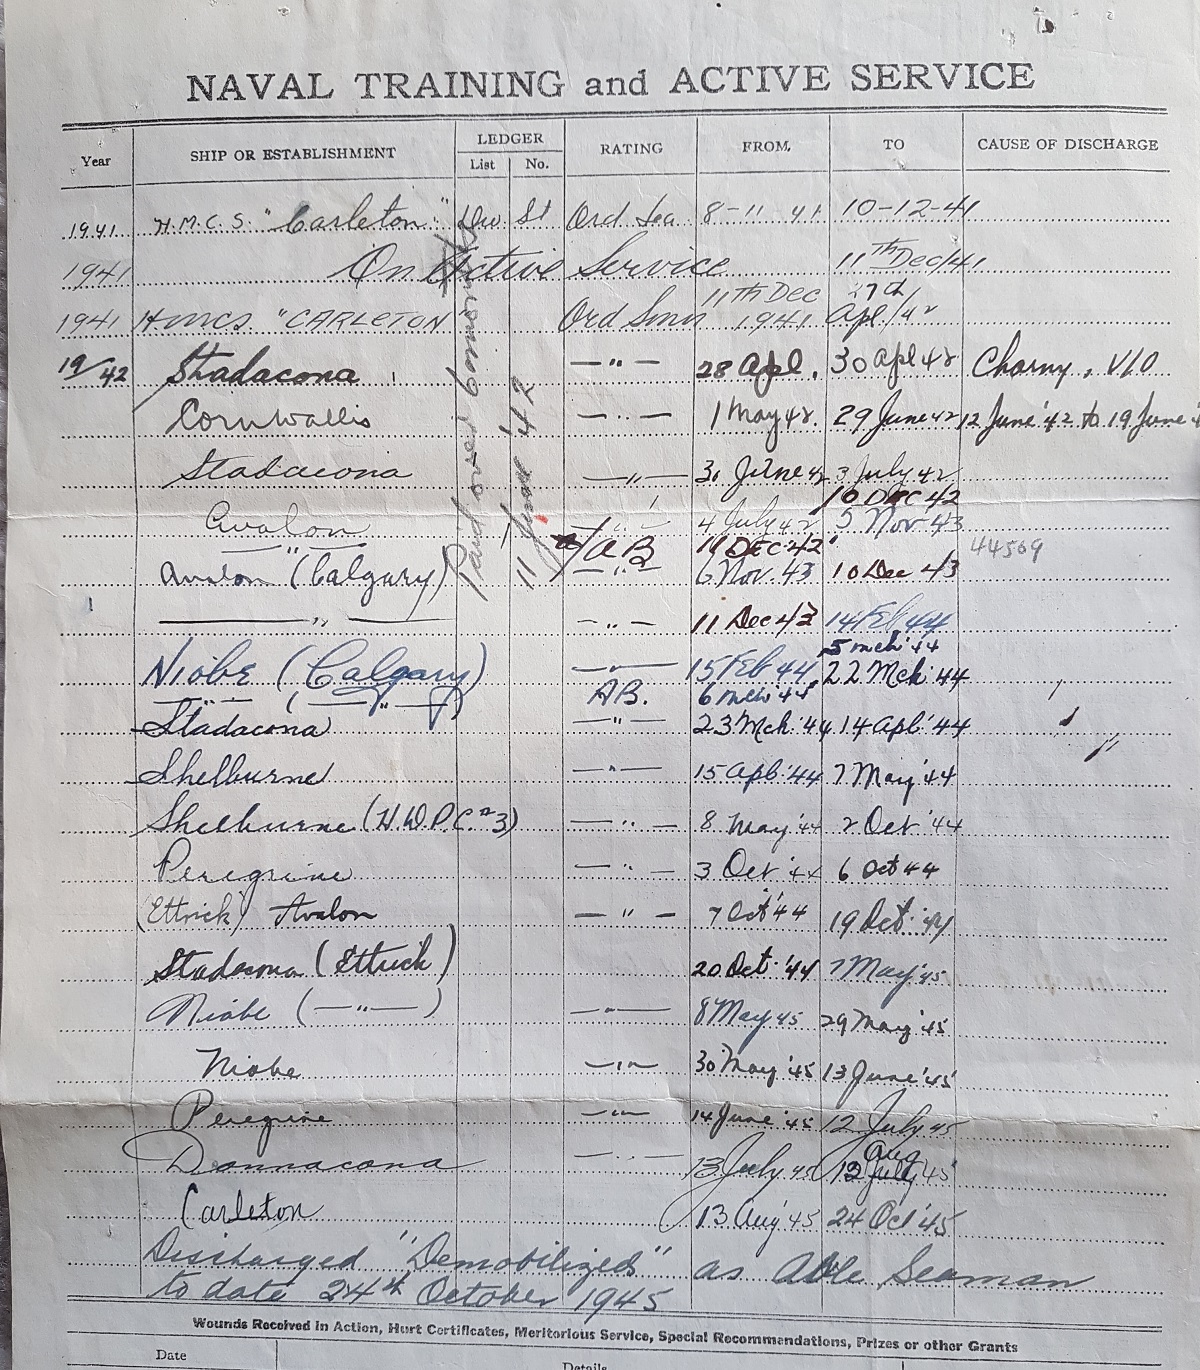 NAVAL TRAINING and ACTIVE SERVICE
Year SHIP OR ESTABLISHMENT LEDGER List No. RATING FROM TO CAUSE OF DISCHARGE
1941 H.M.C.S. "Carleton" Div St Ord Sea 8-11 41 10-12-41
1941 On Active Service 11TH Dec/41
1941 HMCS "CARLETON" Ord Smn 11TH Dec 1941 27th Apl/42
19/42 Stadacona —"— 28 Apl. 30 Apl 42 V/O
Cornwallis —"— 1 May 42. 29 June 42 12 June '42 to 19 June
Stadacona —"— 30 June 42 3 July 42
11 June '42
Avalon —"— 4 July 42 10 DEC 42
—"— A/AB 11 DEC 42 5 Nov 43
44509
Avalon (Calgary) —"— 6 Nov. 43 10 Dec 43
—"— —"— 11 Dec 43 14 Feb 44
Niobe (Calgary) —"— 15 Feb 44 5 mch '44
—"— (—"—) AB. 6 mch '44 22 Mch '44
Stadacona —"— 23 Mch '44 14 Apl '44
Shelburne —"— 15 Apl '44 7 May '44
Shelburne (H.W.P.C. No 3) —"— 8 May '44 2 Oct '44
Peregrine —"— 3 Oct '44 6 Oct 44
(Ettrick) Avalon —"— 7 Oct '44 19 Oct '44
Stadacona (Ettrick) 20 Oct '44 7 May '45
Niobe (—"—) —"— 8 May 45 29 May '45
Niobe —"— 30 May '45 13 June '45
Peregrine —"— 14 June '45 12 July 45
Donnacona —"— 13 July 45 12 July Aug 45
Carleton 13 Aug '45 24 Oct '45
Discharged "Demobilized" as Able Seaman
to date 24th October 1945
Wounds Received in Action, Hurt Certificates, Meritorious Service, Special Recommendations, Prizes or other Grants
Date Details